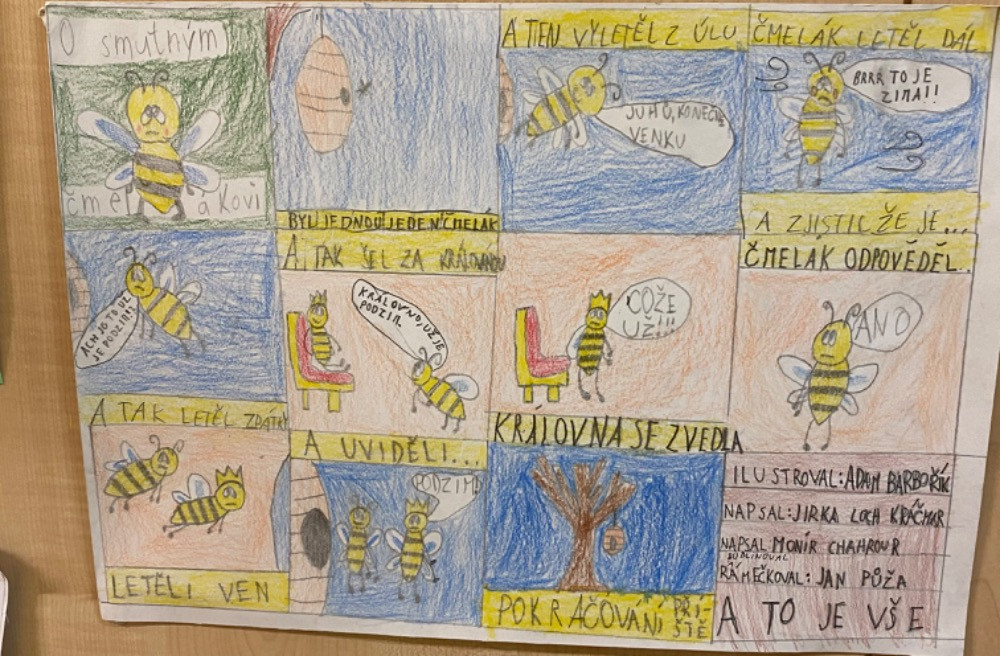 O smutným
čmelákovi
BYL JEDNOU JEDEN ČMELÁK
A TEN VYLETĚL Z ÚLU
JUHŮ, KONEČNĚ
VENKU
ČMELÁK LETĚL DÁL
BRRR TO JE
ZIMA!!
A ZJISTIL ŽE JE...
ACH JO TO UŽ
JE PODZIM!!
A TAK LETĚL ZPÁTKY
A TAK ŠEL ZA KRÁLOVNOU
KRÁLOVNO, UŽ JE
PODZIM.
COŽE
UŽ!!!
KRÁLOVNA SE ZVEDLA
ČMELÁK ODPOVĚDĚL..
ANO
LETĚLI VEN
A UVIDĚLI...
PODZIM!
POKRAČOVÁNÍ PŘÍ-
ŠTĚ
ILUSTROVAL: ADAM BARBOŘÍK
NAPSAL: JIRKA LOCH KRÁČMAR
NAPSAL MONÍR CHAHROUR
RÁMEČKOVAL: JAN PŮŽA
A TO JE VŠE